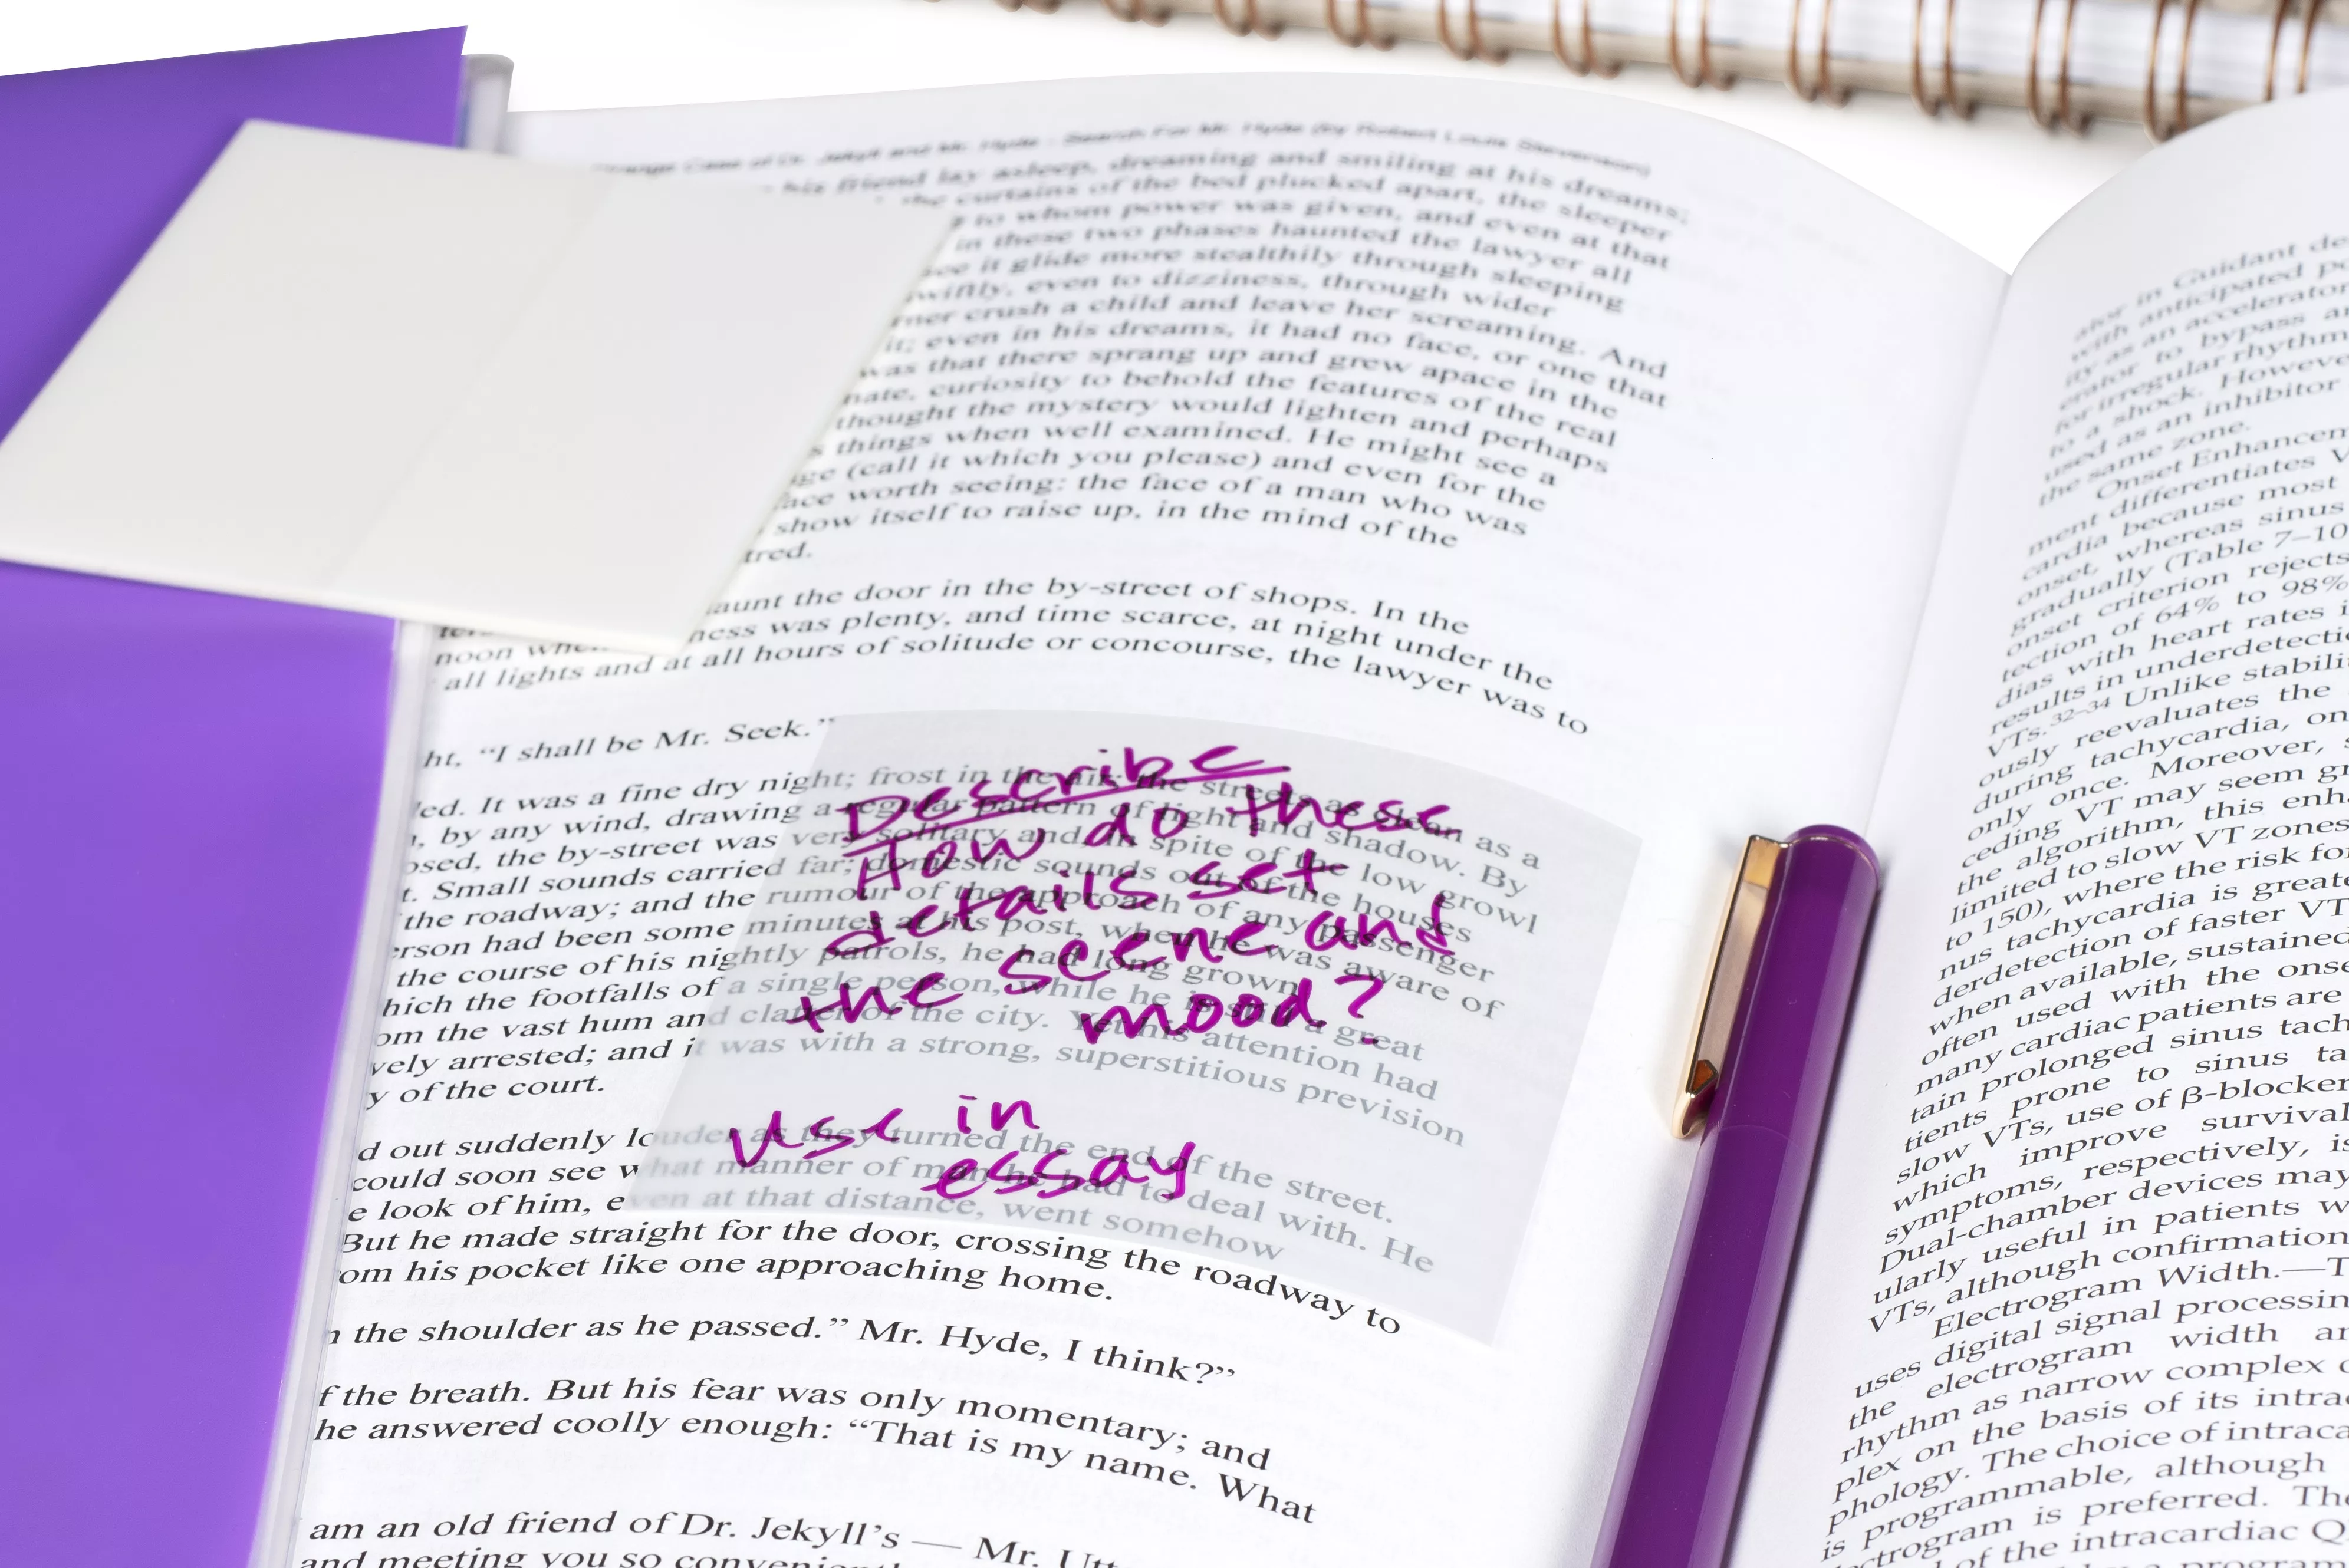 Strange Case of Dr. Jekyll and Mr. Hyde - Search For Mr. Hyde (by Robert Louis Stevenson)
his friend lay asleep, dreaming and smiling at his dreams;
the curtains of the bed plucked apart, the sleeper
to whom power was given, and even at that
in these two phases haunted the lawyer all
see it glide more stealthily through sleeping
swiftly, even to dizziness, through wider
crush a child and leave her screaming. And
it; even in his dreams, it had no face, or one that
was that there sprang up and grew apace in the
curiosity to behold the features of the real
thought the mystery would lighten and perhaps
things when well examined. He might see a
(call it which you please) and even for the
face worth seeing: the face of a man who was
show itself to raise up, in the mind of the
tred.
aunt the door in the by-street of shops. In the
ness was plenty, and time scarce, at night under the
noon when
all lights and at all hours of solitude or concourse, the lawyer was to
ht, “I shall be Mr. Seek.”
ed. It was a fine dry night; frost in the air; the streets as clean as a
, by any wind, drawing a regular pattern of light and shadow. By
osed, the by-street was very solitary and, in spite of the low growl
t. Small sounds carried far; domestic sounds out of the houses
the roadway; and the rumour of the approach of any passenger
erson had been some minutes at his post, when he was aware of
the course of his nightly patrols, he had long grown
hich the footfalls of a single person, while he is still a great
om the vast hum and clatter of the city. Yet his attention had
vely arrested; and it was with a strong, superstitious prevision
y of the court.
d out suddenly louder as they turned the end of the street.
could soon see what manner of man he had to deal with. He
e look of him, even at that distance, went somehow
But he made straight for the door, crossing the roadway to
om his pocket like one approaching home.
n the shoulder as he passed.” Mr. Hyde, I think?”
f the breath. But his fear was only momentary; and
he answered coolly enough: “That is my name. What
am an old friend of Dr. Jekyll’s — Mr. Utt
and meeting you so
Describe
How do these
details set
the scene and
mood?
use in
essay
ator in Guidant de
with anticipated po
ity as an accelerator
erator to bypass an
for irregular rhythm
to a shock. However
used as an inhibitor
the same zone.
Onset Enhancem
ment differentiates V
cardia because most
onset, whereas sinus
gradually (Table 7–10
onset criterion rejects
tection of 64% to 98%
dias with heart rates i
results in underdetecti
VTs.32–34 Unlike stabili
ously reevaluates the
during tachycardia, on
only once. Moreover, s
ceding VT may seem gr
the algorithm, this enha
limited to slow VT zones
to 150), where the risk fo
nus tachycardia is greate
derdetection of faster VT
when available, sustained
often used with the onse
many cardiac patients are
tain prolonged sinus tach
tients prone to sinus ta
slow VTs, use of β-blocker
which improve survival
symptoms, respectively, is
Dual-chamber devices may
ularly useful in patients w
VTs, although confirmation
Electrogram Width.—T
uses digital signal processin
the electrogram width an
rhythm as narrow complex o
plex on the basis of its intrac
phology. The choice of intraca
is programmable, although
ectrogram is preferred. The
of the intracardiac Q